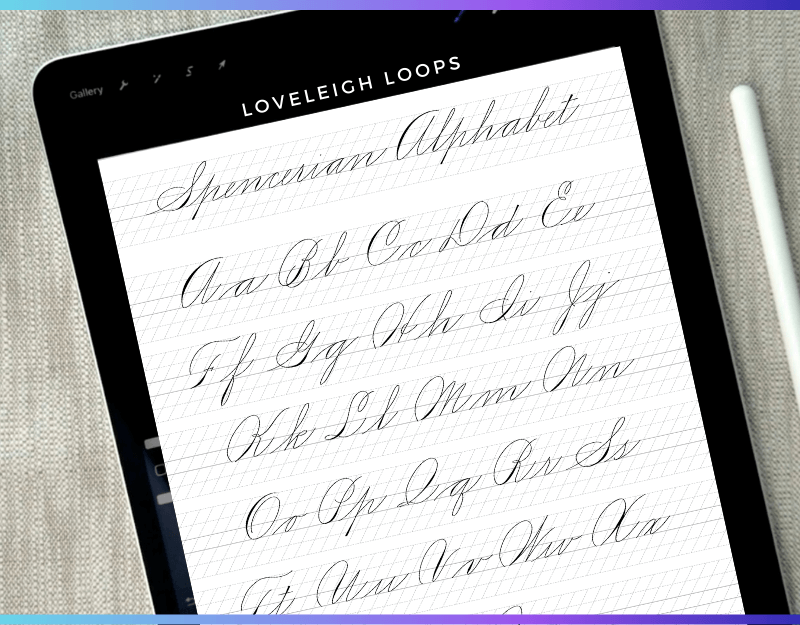 Gallery
LOVELEIGH LOOPS
Spencerian Alphabet
Aa Bb Cc Dd Ee
Ff Gg Hh Ii Jj
Kk Ll Mm Nn
Oo Pp Qq Rr Ss
Tt Uu Vv Ww Xx